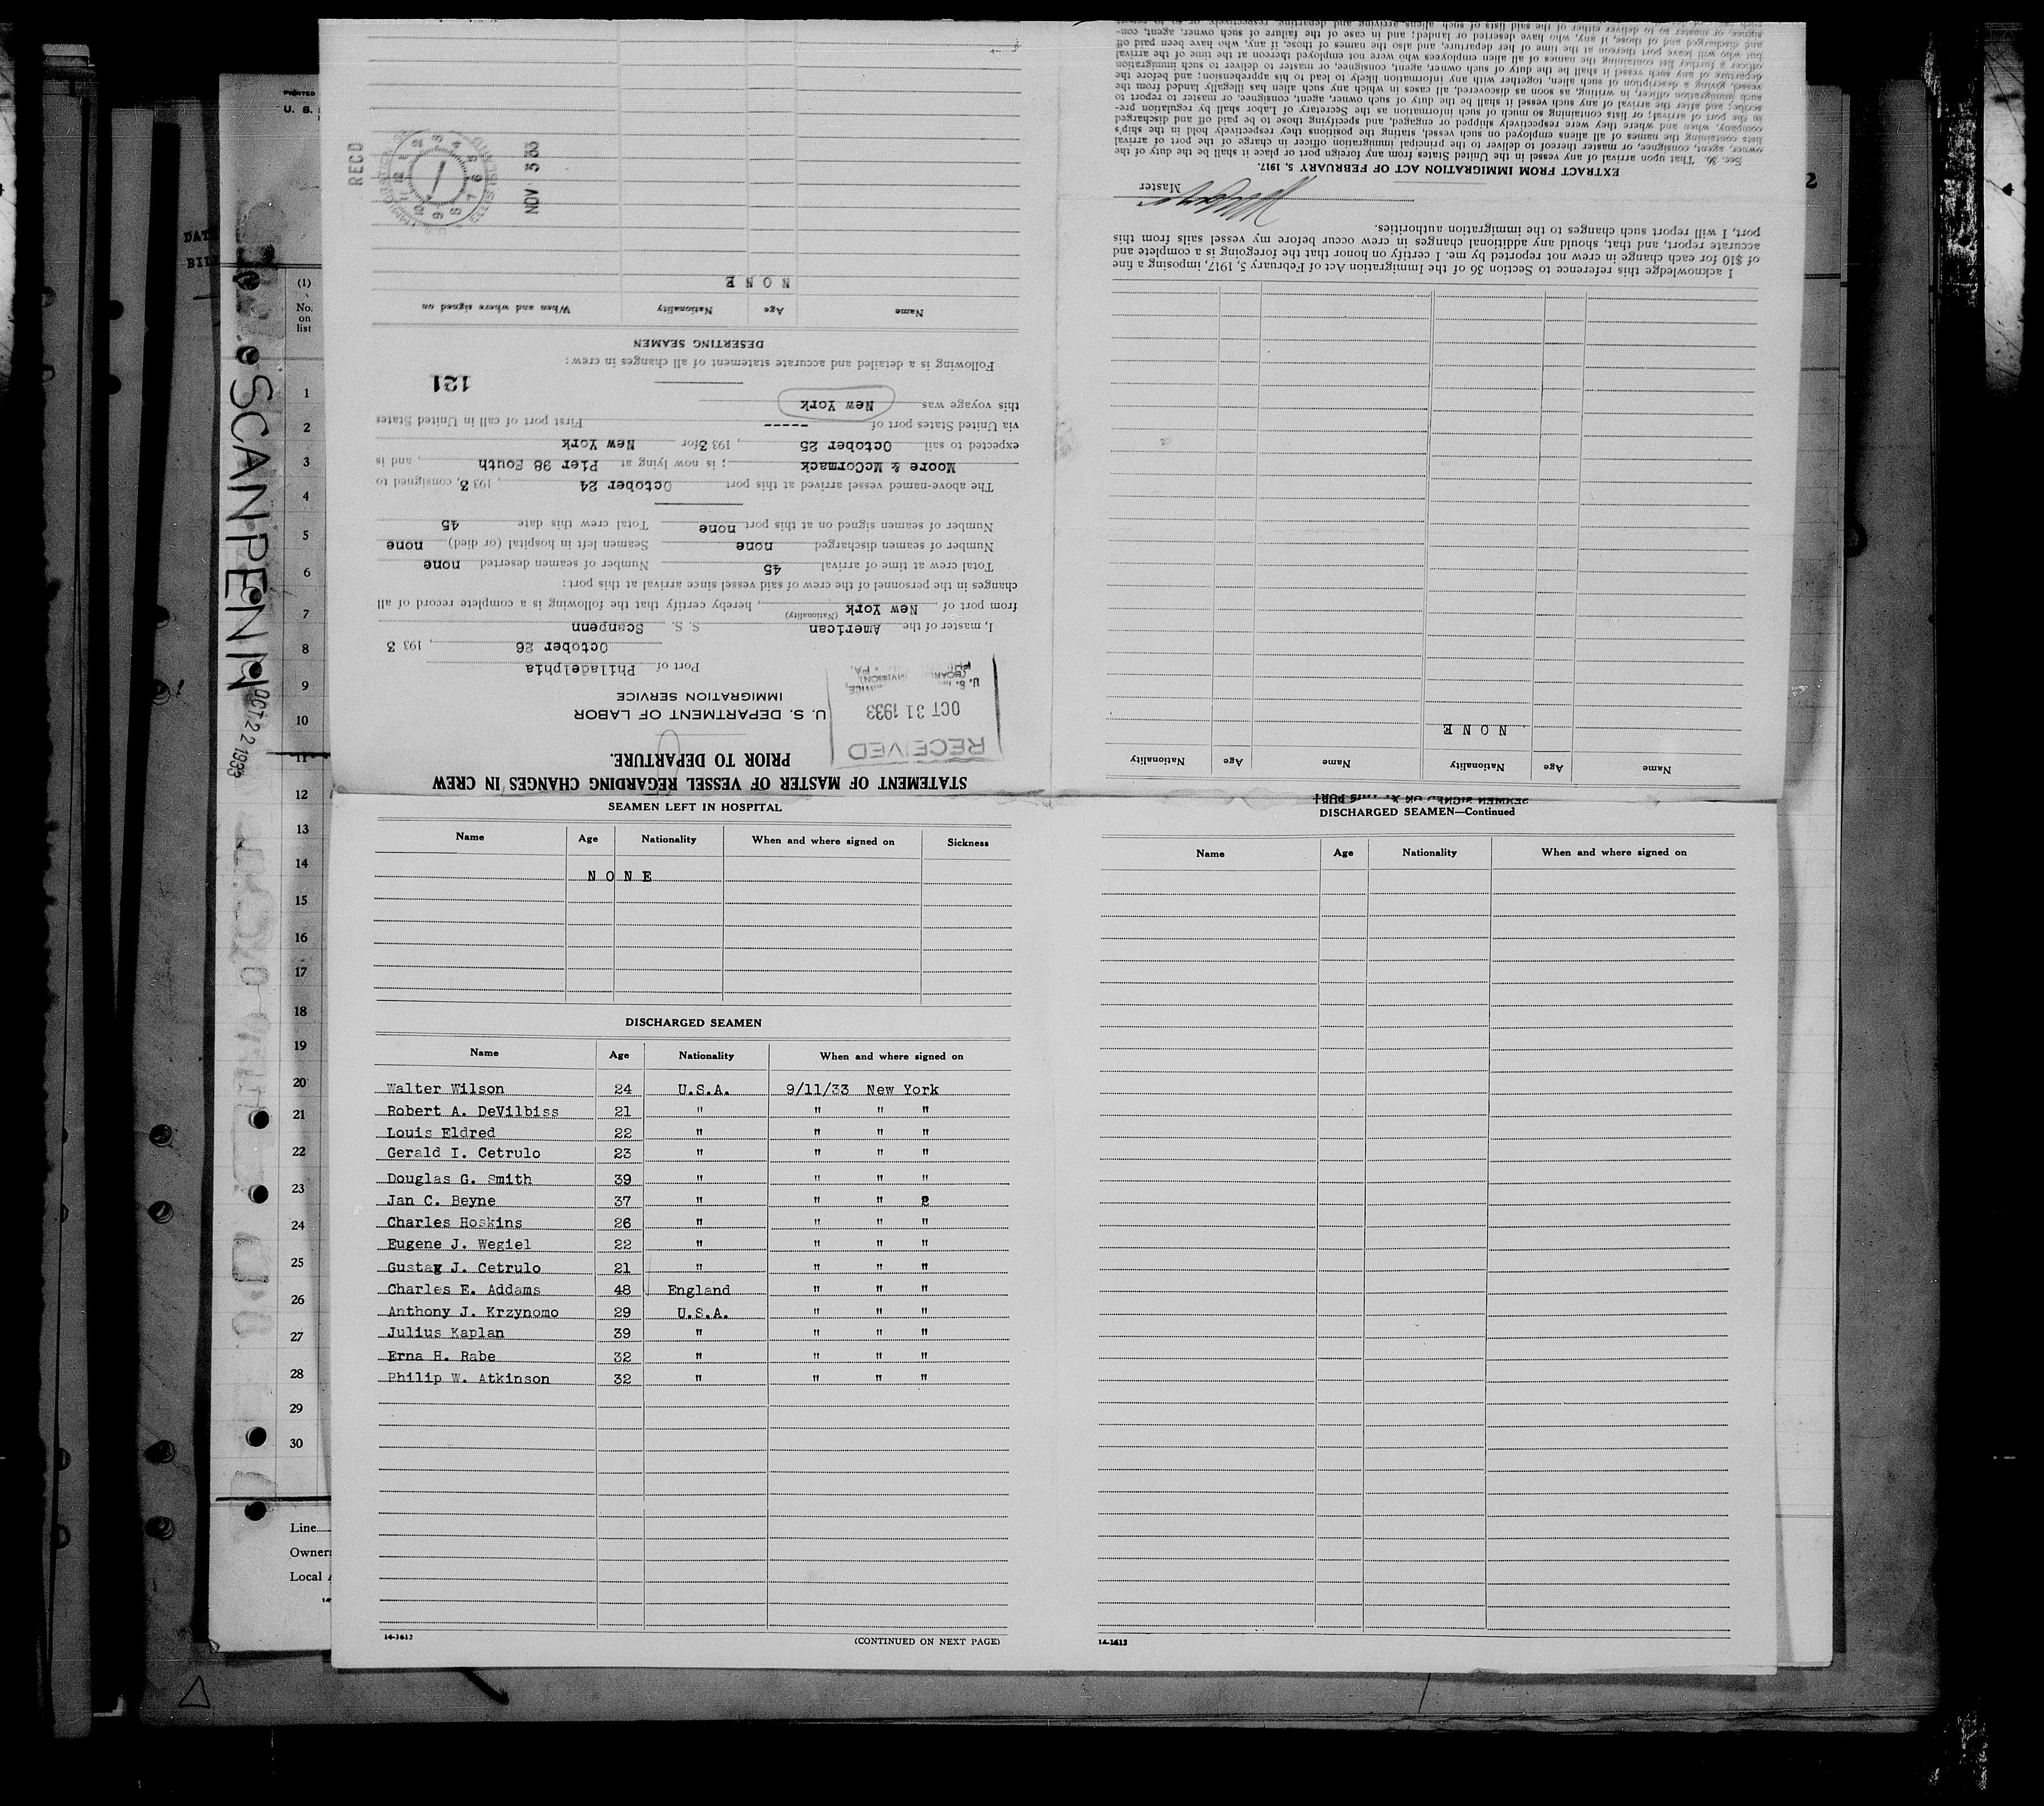 STATEMENT OF MASTER OF VESSEL REGARDING CHANGES IN CREW
PRIOR TO DEPARTURE.
RECEIVED
OCT 31 1933
U. S. DEPARTMENT OF LABOR
IMMIGRATION SERVICE
Port of Philadelphia
October 26, 193 3
I, master of the American S. S. Scanpenn
(Nationality)
from port of New York, hereby certify that the following is a complete record of all
changes in the personnel of the crew of said vessel since arrival at this port:
Total crew at time of arrival 45 Number of seamen deserted none
Number of seamen discharged none Seamen left in hospital (or died) none
Number of seamen signed on at this port none Total crew this date 45
The above-named vessel arrived at this port October 24, 193 3, consigned to
Moore & McCormack; is now lying at Pier 98 South, and is
expected to sail October 25, 193 3 for New York
via United States port of ----- First port of call in United States
this voyage was New York
121
Following is a detailed and accurate statement of all changes in crew:
DESERTING SEAMEN
Name Age Nationality When and where signed on
N O N E
RECD
NOV 5 33
ELLIS ISLAND
SEAMEN SIGNED ON AT THIS PORT
Name Age Nationality Name Age Nationality
N O N E
I acknowledge this reference to Section 36 of the Immigration Act of February 5, 1917, imposing a fine
of $10 for each change in crew not reported by me. I certify on honor that the foregoing is a complete and
accurate report, and that, should any additional changes in crew occur before my vessel sails from this
port, I will report such changes to the immigration authorities.
Master
EXTRACT FROM IMMIGRATION ACT OF FEBRUARY 5, 1917.
Sec. 36. That upon arrival of any vessel in the United States from any foreign port or place it shall be the duty of the
owner, agent, consignee, or master thereof to deliver to the principal immigration officer in charge of the port of arrival
lists containing the names of all aliens employed on such vessel, stating the positions they respectively hold in the ship's
company, when and where they were respectively shipped or engaged, and specifying those to be paid off and discharged
in the port of arrival; or lists containing so much of such information as the Secretary of Labor shall by regulation pre-
scribe; and after the arrival of any such vessel it shall be the duty of such owner, agent, consignee, or master to report to
such immigration officer, in writing, as soon as discovered, all cases in which any such alien has illegally landed from the
vessel, giving a description of such alien, together with any information likely to lead to his apprehension; and before the
departure of any such vessel it shall be the duty of such owner, agent, consignee, or master to deliver to such immigration
officer a further list containing the names of all alien employees who were not employed thereon at the time of the arrival
but who will leave port thereon at the time of her departure, and also the names of those, if any, who have been paid off
and discharged and of those, if any, who have deserted or landed; and in case of the failure of such owner, agent, con-
signee, or master so to deliver either of the said lists of such aliens arriving and departing, respectively, or so to report
SEAMEN LEFT IN HOSPITAL
Name Age Nationality When and where signed on Sickness
N O N E
DISCHARGED SEAMEN
Name Age Nationality When and where signed on
Walter Wilson 24 U.S.A. 9/11/33 New York
Robert A. DeVilbiss 21 " " " "
Louis Eldred 22 " " " "
Gerald I. Cetrulo 23 " " " "
Douglas G. Smith 39 " " " "
Jan C. Beyne 37 " " "
Charles Hoskins 26 " " " "
Eugene J. Wegiel 22 " " " "
Gustav J. Cetrulo 21 " " " "
Charles E. Addams 48 England " " "
Anthony J. Krzynomo 29 U.S.A. " " "
Julius Kaplan 39 " " " "
Erna H. Rabe 32 " " " "
Philip W. Atkinson 32 " " " "
14-1613
(CONTINUED ON NEXT PAGE)
DISCHARGED SEAMEN—Continued
Name Age Nationality When and where signed on
14-1613
U. S.
DATE
(1)
No.
on
list
1
2
3
4
5
6
7
8
9
10
11
12
13
14
15
16
17
18
19
20
21
22
23
24
25
26
27
28
29
30
Line
Owner
Local
SCANPENN
OCT 22 1933
2